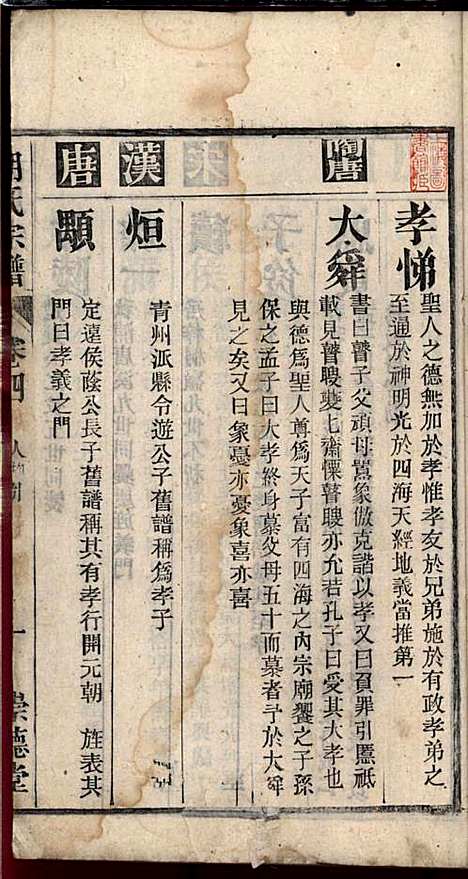 孝悌
聖人之德無加於孝惟孝友於兄弟施於有政孝弟之
至通於神明光於四海天經地義當推第一
陶唐
大舜
書曰瞽子父頑母嚚象傲克諧以孝又曰負罪引慝祗
載見瞽瞍夔夔齋慄瞽瞍亦允若孔子曰舜其大孝也
與德為聖人尊為天子富有四海之內宗廟饗之子孫
保之孟子曰大孝終身慕父母五十而慕者予於大舜
見之矣又曰象憂亦憂象喜亦喜
漢
烜
青州派縣令遊公子舊譜稱為孝子
唐
顒
定遠侯蔭公長子舊譜稱其有孝行開元朝 旌表其
門曰孝義之門
氏宗譜
卷四
人物
一
崇德堂